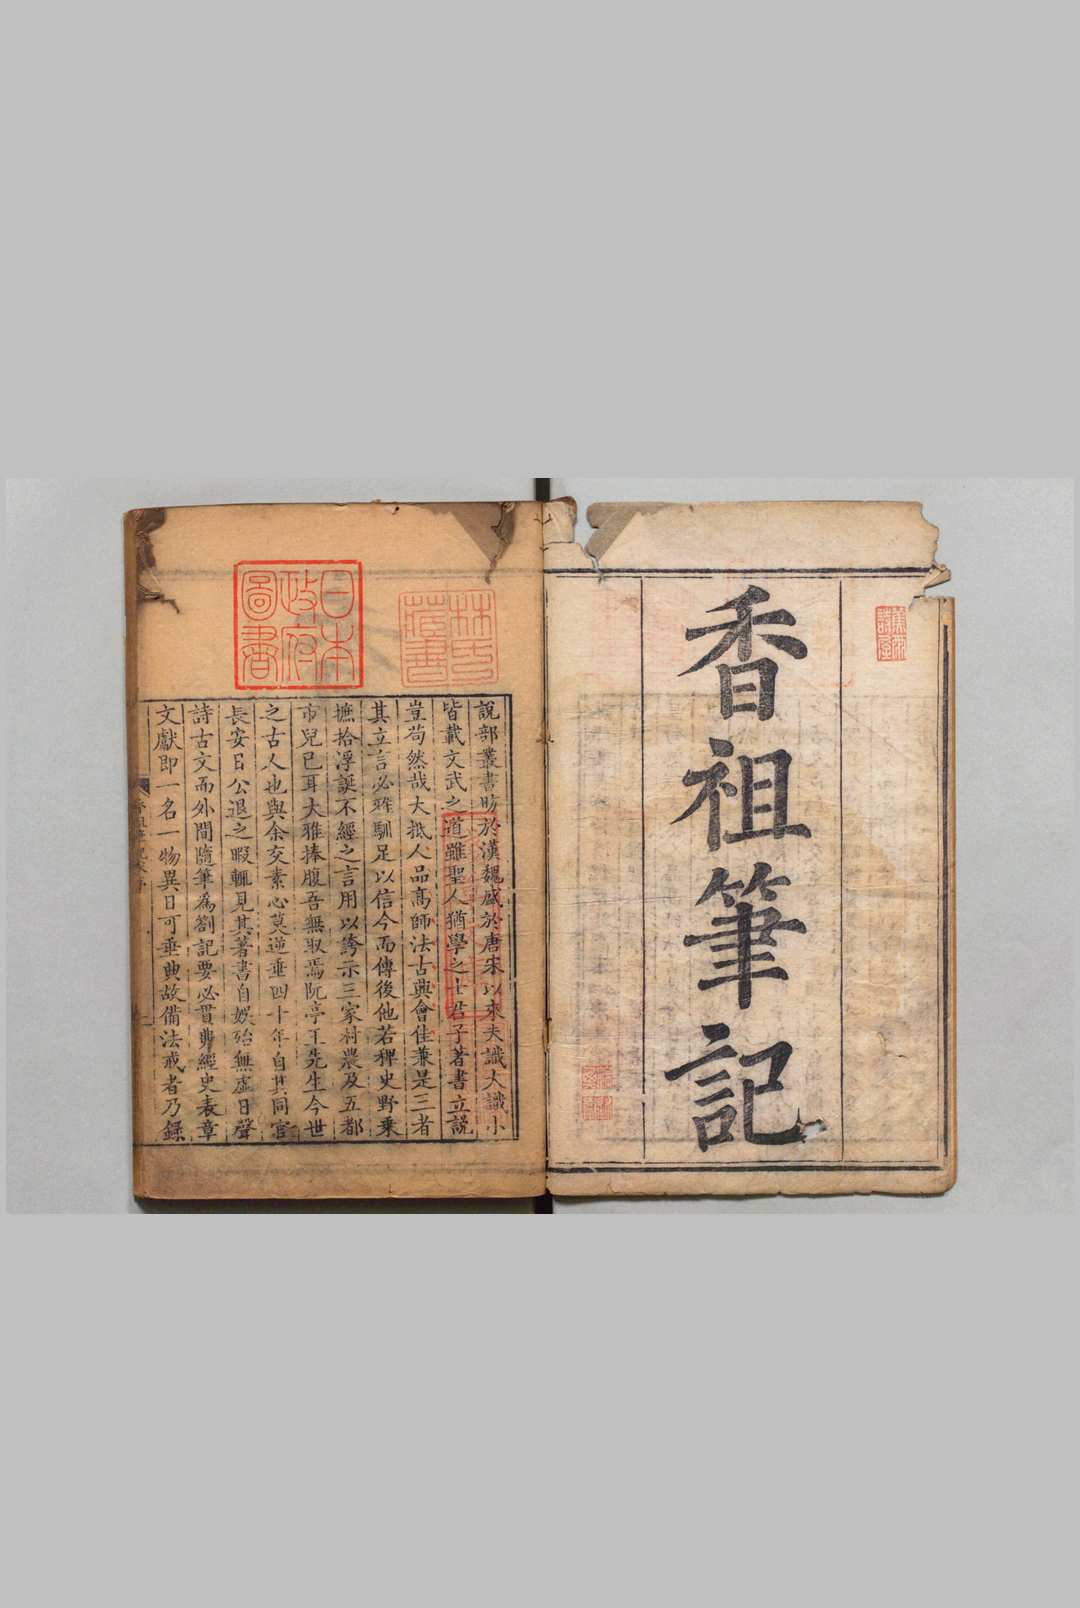 香祖筆記
林氏
藏書
日本
政府
圖書
說部叢書昉於漢魏盛於唐宋以來夫識大識小
皆載文武之道雖聖人猶學之士君子著書立說
豈苟然哉大抵人品高師法古典會佳兼是三者
其立言必雅馴足以信今而傳後他若稗史野乘
摭拾浮誕不經之言用以誇示三家村農及五都
市兒已耳大雅捧腹吾無取焉阮亭王先生今世
之古人也與余交素心莫逆垂四十年自其同官
長安日公退之暇輒見其著書自娛殆無虛日聲
詩古文而外間隨筆為劄記要必貫串經史表章
文獻即一名一物異日可垂典故備法戒者乃錄